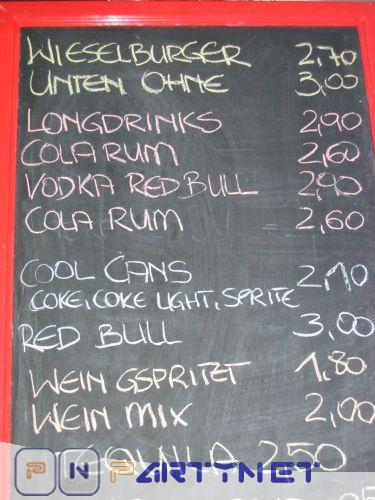 WIESELBURGER 2,70
UNTEN OHNE 3,00
LONGDRINKS 2,90
COLA RUM 2,60
VODKA RED BULL 2,90
COLA RUM 2,60
COOL CANS 2,10
COKE, COKE LIGHT, SPRITE
RED BULL 3,00
WEIN GSPRITZT 1,80
WEIN MIX 2,00
250
PN PARTYNET